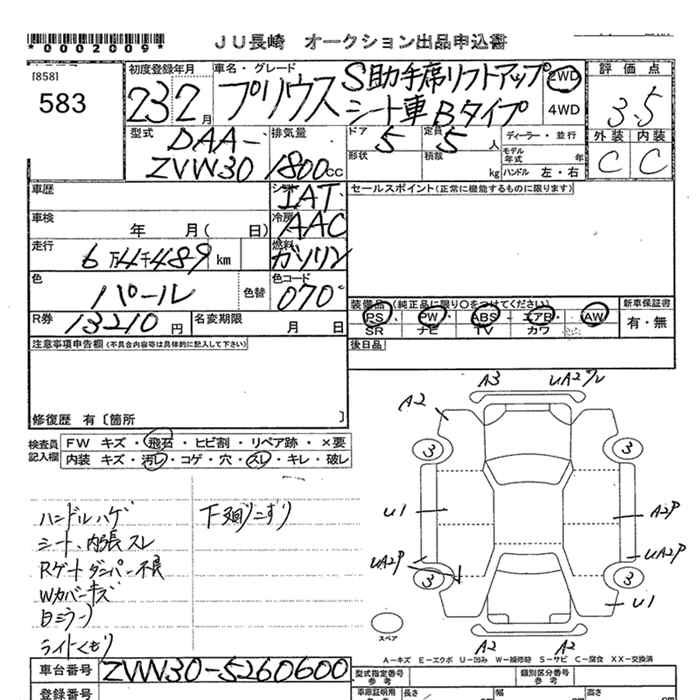 *0002009*
JU長崎 オークション出品申込書
[858]
583
初度登録年月
23 2月
車名・グレード
プリウス
S助手席リフトアップ
シート車 Bタイプ
2WD
4WD
評価点
3.5
外装 内装
C C
型式
DAA-
ZVW30
排気量
1800cc
ドア
5
定員
5人
形状
積載
kg
ディーラー・並行
モデル年式 年
ハンドル 左・右
車歴
シフト
IAT
セールスポイント(正常に機能するものに限ります)
車検
年 月( 日)
冷房
AAC
走行
6万4千489km
燃料
ガソリン
色
パール
色替
色コード
070
R券
13210円
名変期限
月 日
装備品(純正品に限り○をつけてください)
PS・PW・ABS・エアB・AW
SR ナビ TV カワ
新車保証書
有・無
注意事項申告欄(不具合内容等は具体的に記入して下さい)
後日品
修復歴 有〔箇所 〕
検査員
記入欄
FW キズ・飛石・ヒビ割・リペア跡・×要
内装 キズ・汚レ・コゲ・穴・スレ・キレ・破レ
ハンドルハゲ
シート、内張スレ
Rゲートダンパー不良
Wカバーキズ
日ミラーワ
ライトくもり
下廻りこすり
A3
UA2
A2
3
3
U1
A2P
UA2P
UA2P
3
3
U1
A2
A2
スペア
A-キズ E-エクボ U-凹み W-補修跡 S-サビ C-腐食 XX-交換済
車台番号
ZVW30-5260600
登録番号
型式指定番号
参考
類別区分番号
参考
車庫証明用
参考
長さ
幅
高さ